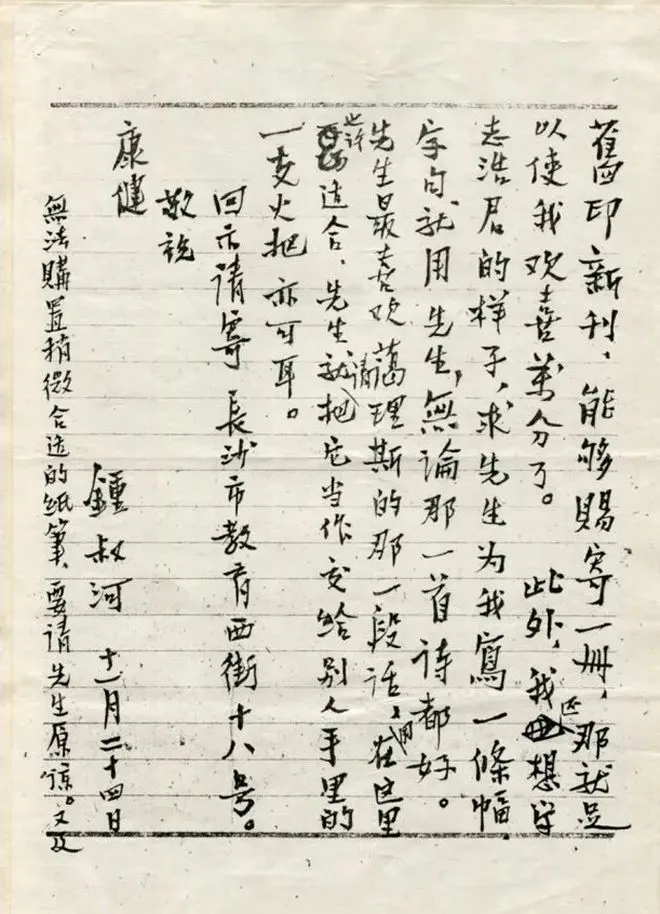 舊印新刊，能够賜寄一冊，那就足
以使我欢喜萬分了。此外，我还想学
志浩君的样子，求先生为我寫一條幅，
字句就用先生，無論那一首诗都好。
先生最喜欢蔼理斯的那一段话，用在这里
也许适合，先生就请把它当作交给别人手里的
一支火把亦可耳。
回示请寄長沙市教育西街十八号。
敬祝
康健
鍾叔河 十一月二十四日
無法購置稍微合适的纸筆，要请先生原谅。又及